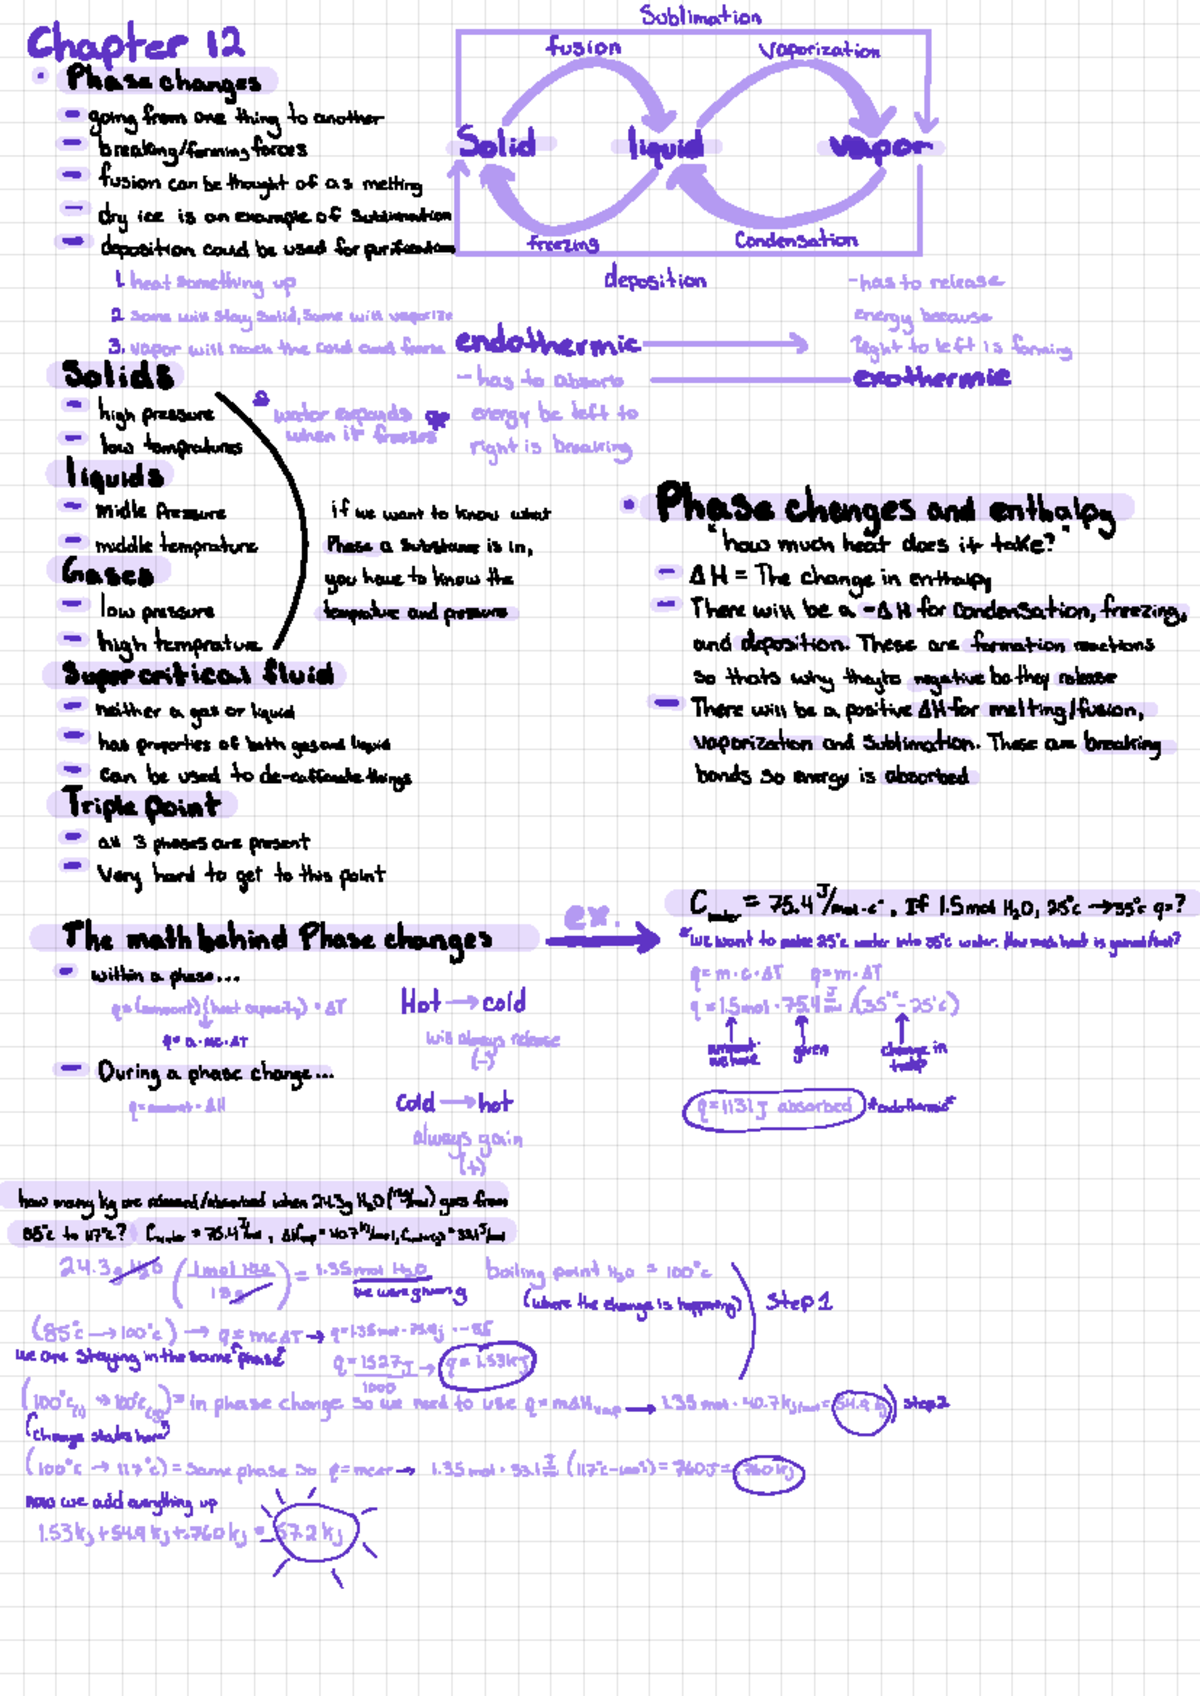 Chapter 12
Phase changes
- going from one thing to another
- breaking/forming forces
- fusion can be thought of as melting
- dry ice is an example of sublimation
- deposition could be used for purification
1. heat something up
2. some will stay solid, some will vaporize
3. vapor will reach the cold and form
Sublimation
fusion
vaporization
Solid
liquid
vapor
freezing
Condensation
deposition
-has to release
energy because
Right to left is forming
endothermic
exothermic
- has to absorb
energy be left to
right is breaking
Solids
- high pressure
- low tempratures
water expands
when it freezes
liquids
- midle Pressure
- middle temprature
Gases
- low pressure
- high temprature
if we want to know what
Phase a substance is in,
you have to know the
temprature and pressure
Supercritical fluid
- neither a gas or liquid
- has properties of both gas and liquid
- can be used to de-caffeinate things
Triple point
- all 3 phases are present
- Very hard to get to this point
Phase changes and enthalpy
"how much heat does it take?"
- ΔH = The change in enthalpy
- There will be a -ΔH for condensation, freezing,
and deposition. These are formation reactions
so thats why they're negative bc they release
- There will be a positive ΔH for melting/fusion,
vaporization and sublimation. These are breaking
bonds so energy is absorbed
The math behind Phase changes
ex.
- within a phase...
q=(amount)(heat capacity)·ΔT
- During a phase change...
q=amount·ΔH
Hot → cold
will always release
(-)
cold → hot
always gain
(+)
C water = 75.4 J/mol·c°, If 1.5 mol H₂O, 25°c → 35°c q=?
*we want to make 25°c water into 35°c water. How much heat is gained/lost?
q=m·c·ΔT q=m·ΔT
q=1.5mol·75.4 J/m (35°c-25°c)
amount we have
given
change in temp
q=1131J absorbed *endothermic*
how many kg are released/absorbed when 24.3g H₂O goes from
85°c to 117°c? C water = 75.4 J/mol, ΔH vap = 40.7 kJ/mol, = 33.1 J/mol
24.3g H₂O (1mol H₂O / 18g) = 1.35mol H₂O
we were given g
boiling point H₂O = 100°c
(where the change is happening)
Step 1
(85°c → 100°c) → q=mcΔT → q=1.35mol·75.4j
we are staying in the same "phase"
q=1527J/1000 → q=1.53kJ
(100°c(l) → 100°c(g)) = in phase change so we need to use q=mΔH vap → 1.35mol·40.7kJ/mol = 54.9 kJ step 2
(change states here)
(100°c → 117°c) = same phase so q=mcΔT → 1.35mol·33.1 J/m (117°c-100°c) = 760J = .760kj
now we add everything up
1.53kj+54.9kj+.760kj = 57.2kj